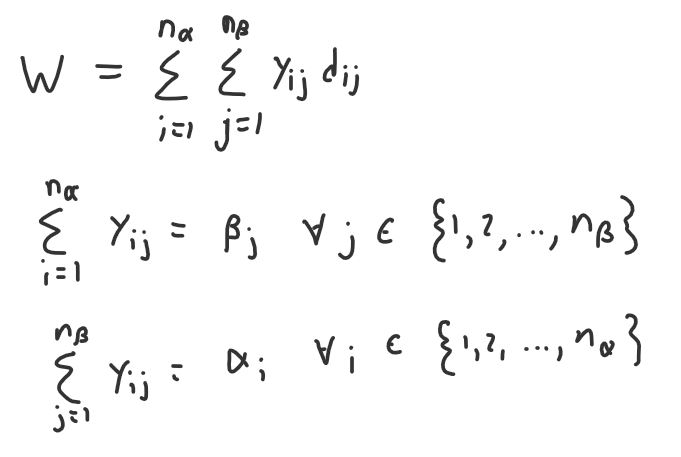 W = \sum_{i=1}^{n_α} \sum_{j=1}^{n_β} y_{ij} d_{ij}
\sum_{i=1}^{n_α} y_{ij} = β_j ∀ j ∈ {1, 2, ..., n_β}
\sum_{j=1}^{n_β} y_{ij} = α_i ∀ i ∈ {1, 2, ..., n_α}